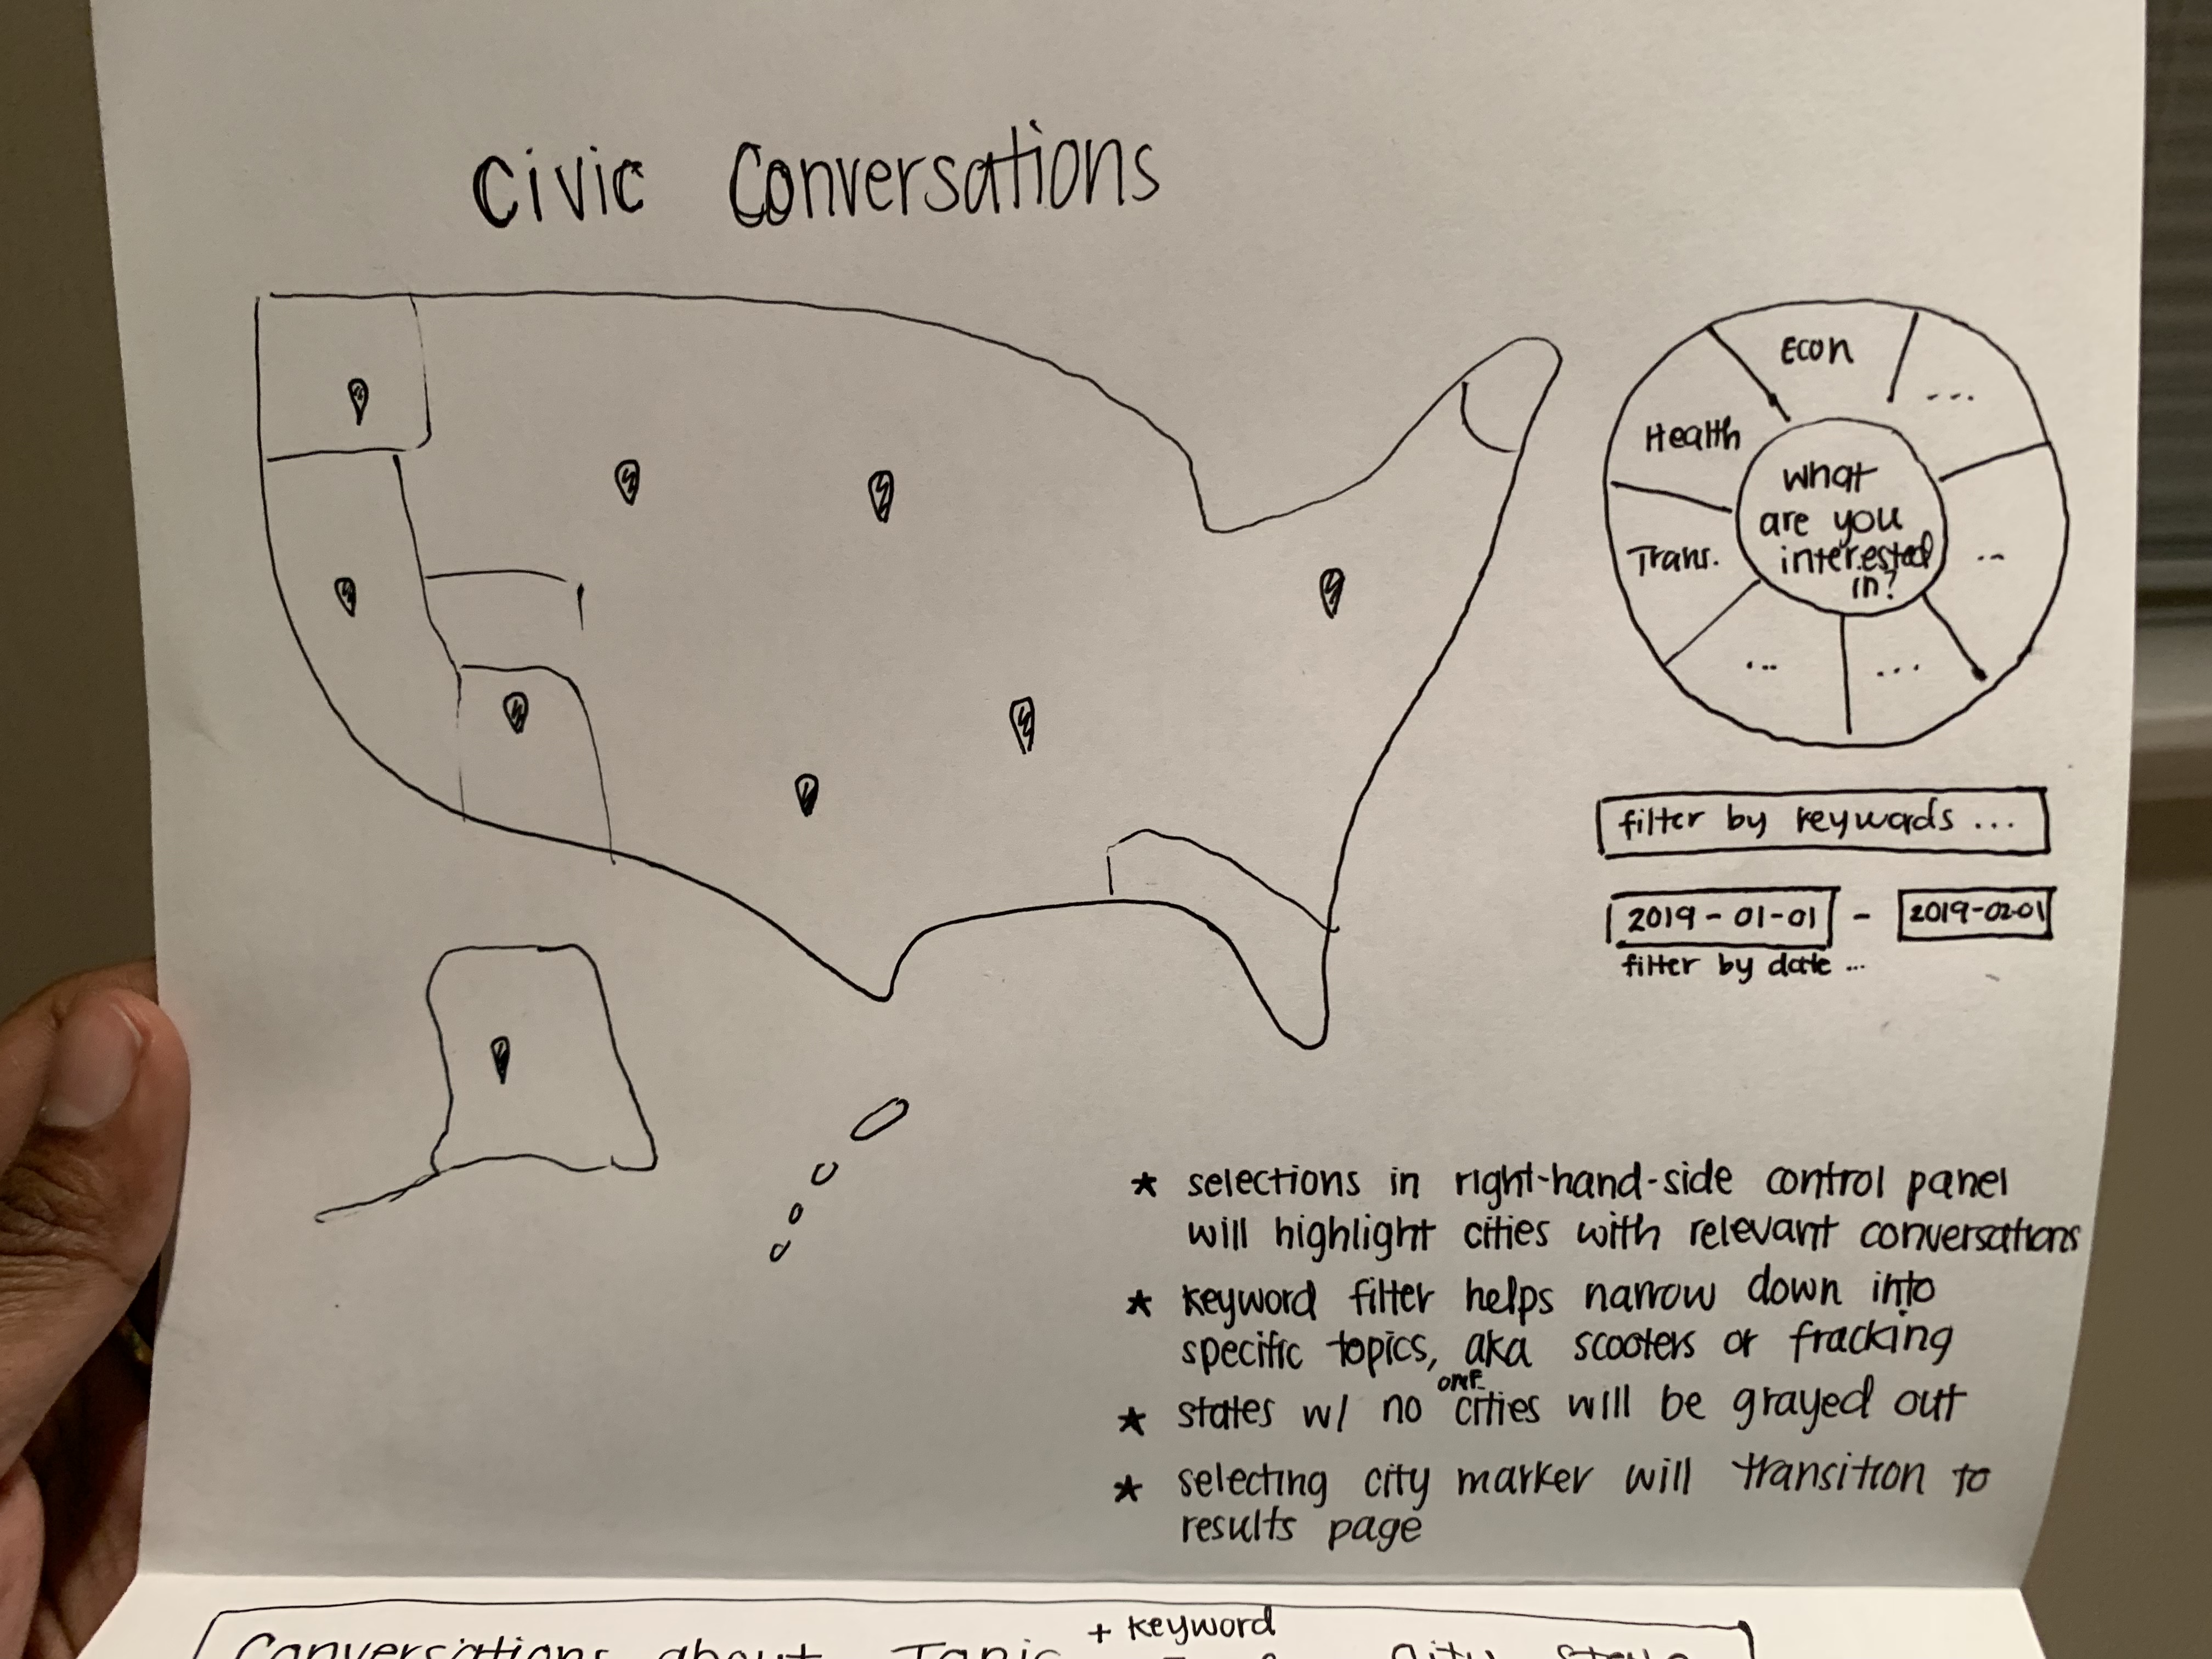 Civic Conversations
Econ
...
Health
What
are you
interested
in?
Trans.
...
...
...
filter by keywads ...
2019-01-01 - 2019-02-01
filter by date ...
* selections in right-hand-side control panel
will highlight cities with relevant conversations
* keyword filter helps narrow down into
specific topics, aka scooters or fracking
* states w/ no cities will be grayed out
* selecting city marker will transition to
results page
+ keyword
Conversations about Topic